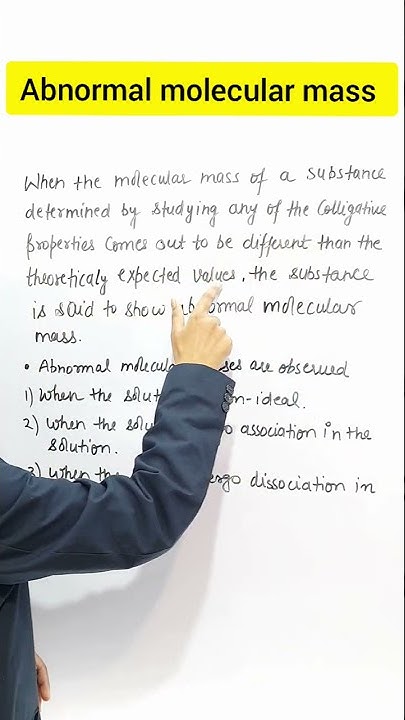 Abnormal molecular mass
When the molecular mass of a substance
determined by studying any of the Colligative
properties Comes out to be different than the
theoreticaly expected values, the substance
is said to show abnormal molecular
mass.
• Abnormal molecular are observed
1) When the
2) when the association in the
solution.
3) when the dissociation in